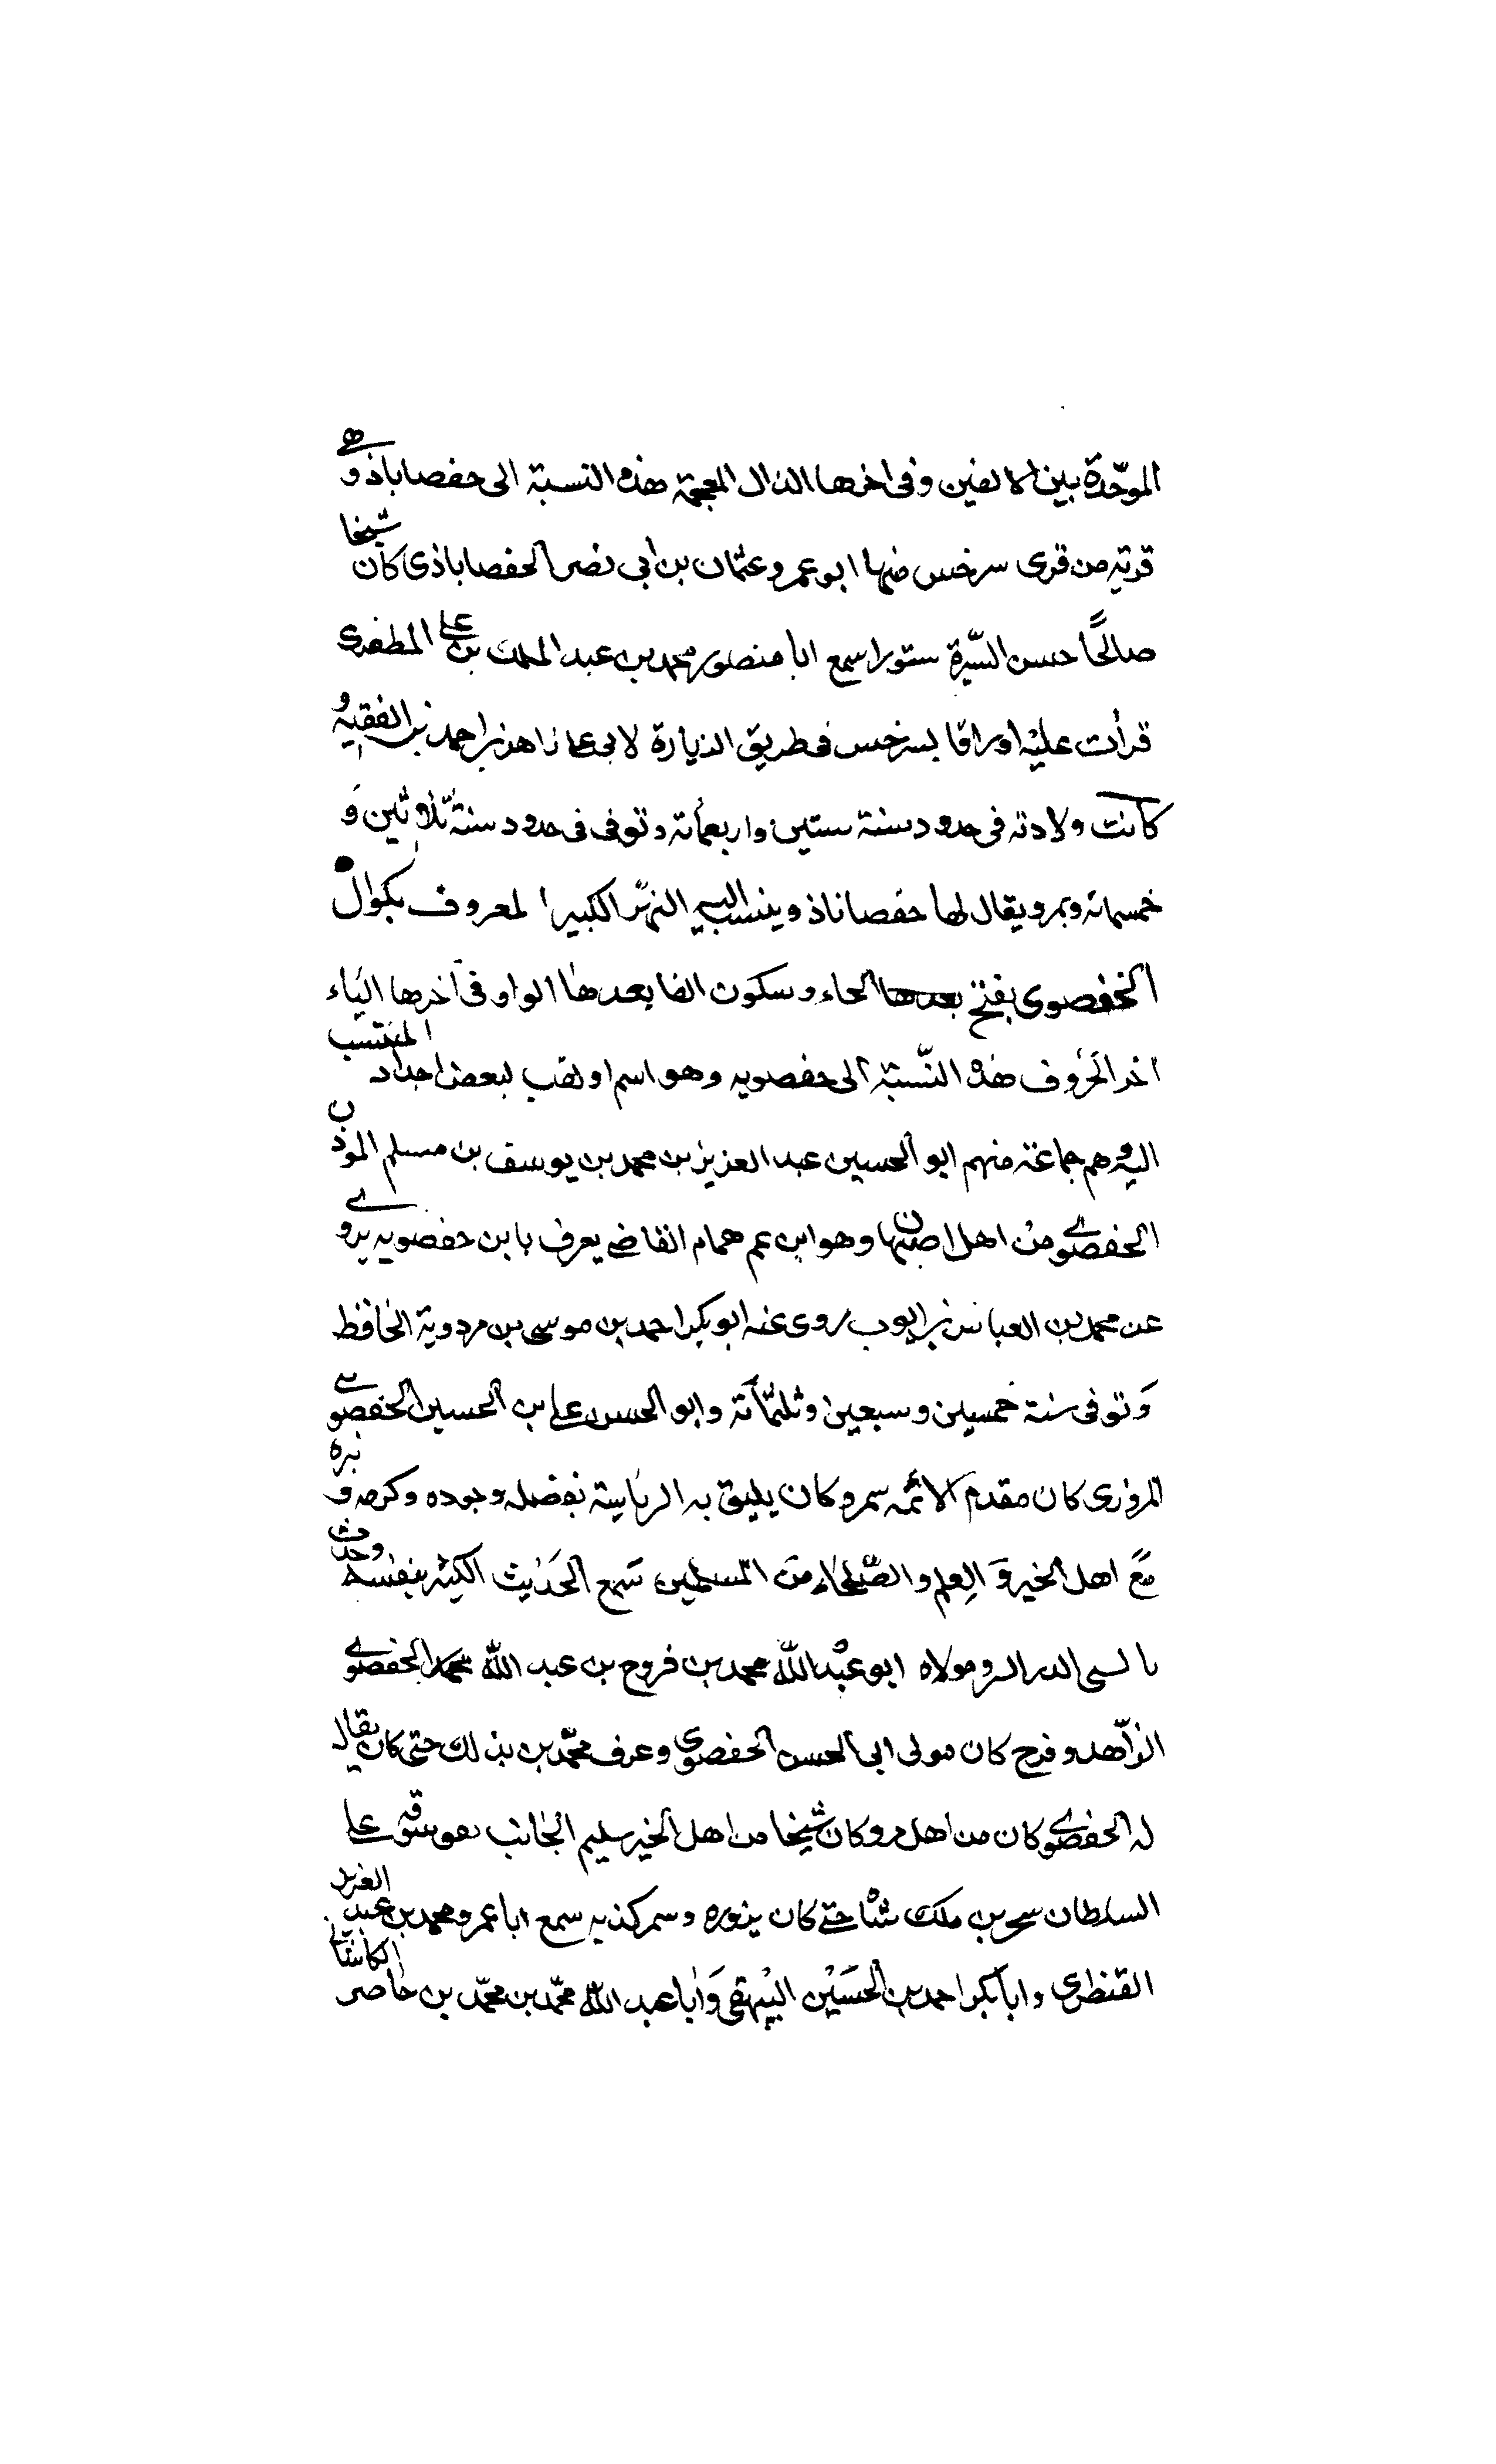 الموحّدة بين الالفين وفى اخرها الذال المعجمة هذه النسبة الى حفصاباذ وهى
قرية من قرى سرخس منها ابو عمرو عثمان بن أبى نصر الحفصاباذى كان شيخا
صالحًا حسن السّيرة ستورا سمع ابا منصور محمد بن عبد الملك بن على المظفرى
قرأت عليه اوراقا بسرخس فى طريق الزيارة لابى على زاهر بن احمد بن الفقيه و
كانت ولادته فى حدود سنة ستين واربعمائة وتوفى فى حدود سنة ثلاثين وَ
خمسمائة وبمرو يقال لها حفصاناذ وينسب اليه النهر الكبير المعروف بكوال
الحفصوى بفتح الحاء وسكون الفا بعدها الواو فى آخرها الياء
اخر الحَروف هذه النّسبة الى حفصويه وهو اسم او لقب لبعض اجداد المنتسب
اليه وهم جماعة منهم ابو الحسين عبد العزيز بن محمد بن يوسف بن مسلم الموذن
الحفصوے من اهل اصبهان وهو ابن عم همام القاضے يعرف بابن حفصويه يروے
عن محمد بن العباس بن ايوب روى عنه ابو بكر احمد بن موسى بن مردوية الحافظ
وَتوفى سنة خمسين وسبعين وثلثمّائة وابو الحسن على بن الحسين الحفصوے
المروزى كان مقدم الائمه بمرو كان يليق به الرئاسة بفضله وجوده وكرمه و بره
مَعَ اهل الخير وَ العِلم والصّلحاء من المسلمين سَمع الحَديث الكثير بنفسه وحدث
ومولاه ابو عبْد اللّه محمد بن فروح بن عبد اللّه محمد الحفصوے
الزّاهد وفرح كان مولى ابى الحسن الحفصوى وعرف محمّد بن بذلك حتى كان يقال
له الحفصوے كان من اهل مرو كان شيخا من اهل الخير سليم الجانب سوقه على
السلطان سنجر بن ملك شاه حتے كان يزوره وسمر كنديه سمع ابا عمرو محمد بن عبد العزيز
القنطرى وابا بكر احمد بن الحسَيْن البيْهقى وَابا عبد اللّه محمّد بن محمّد بن حاصر الكاشانى